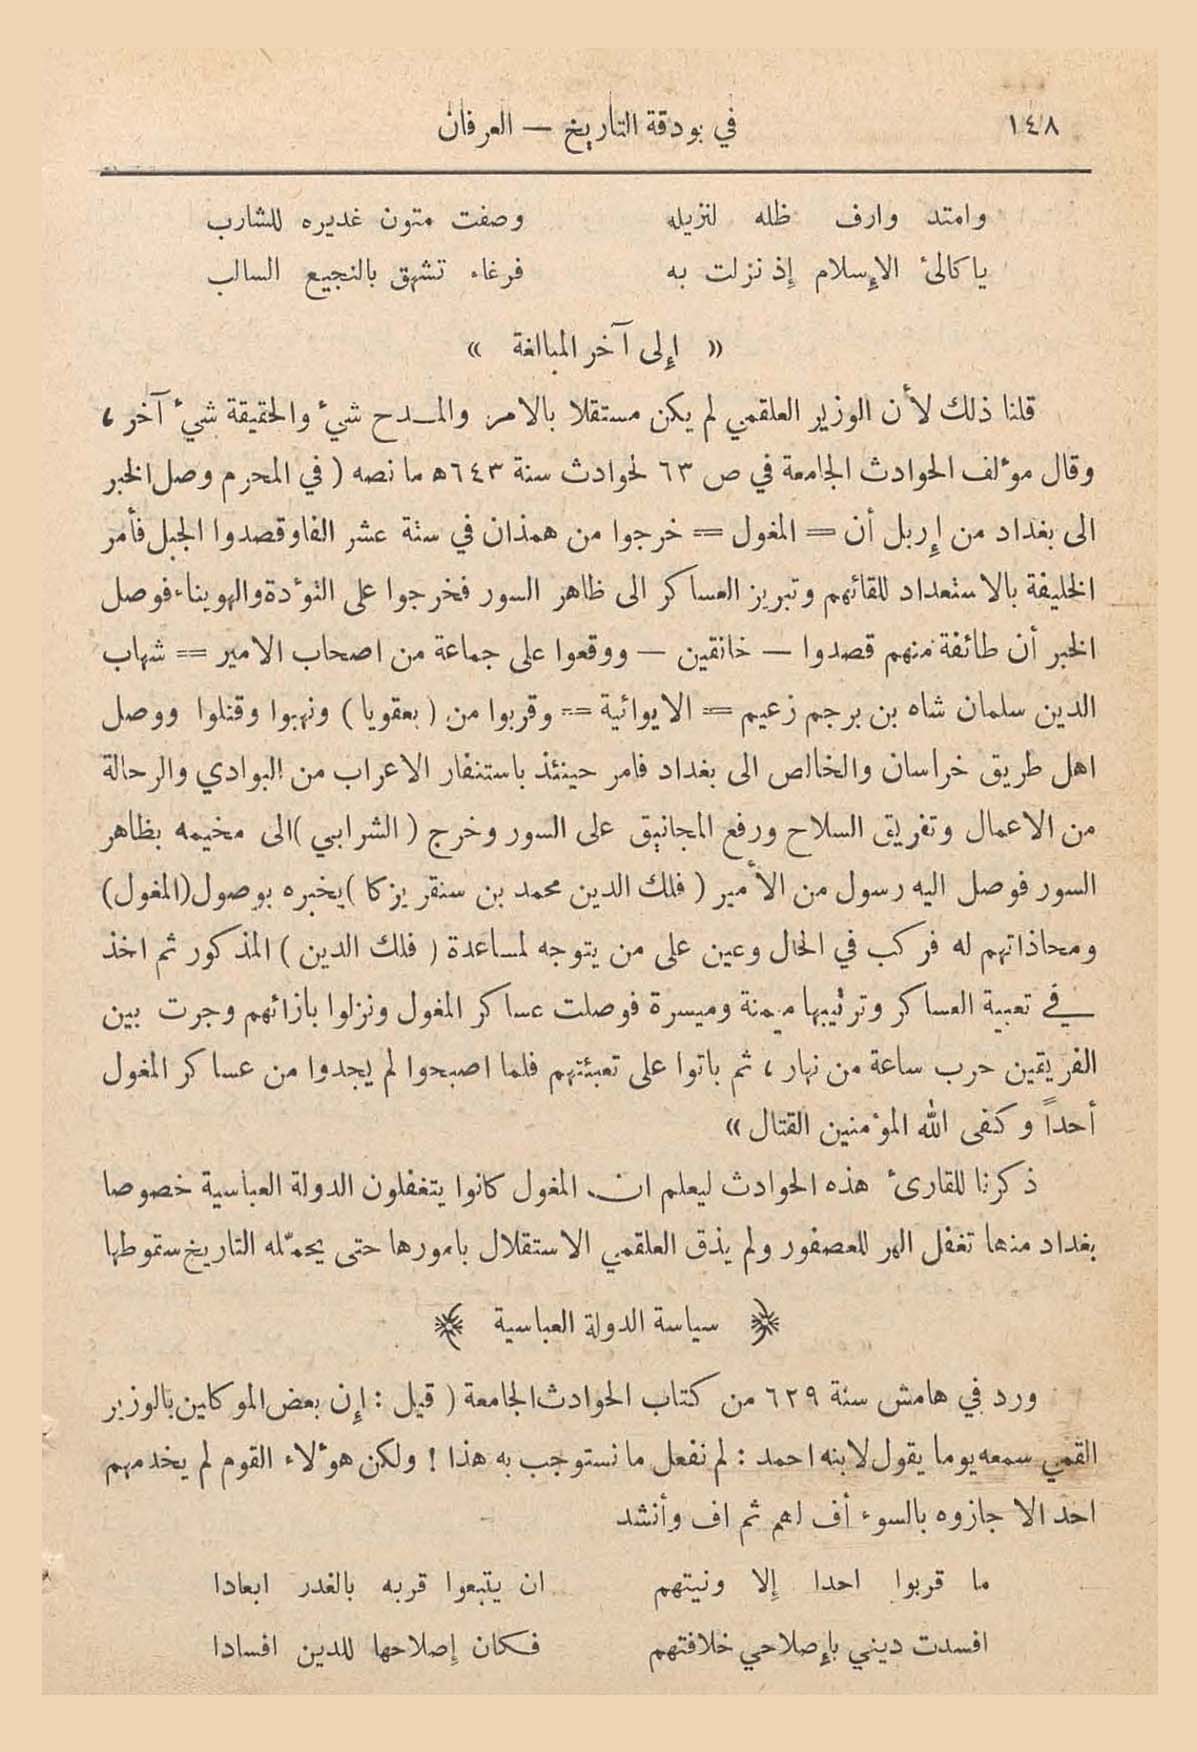 ١٤٨ في بودقة التاريخ — العرفان
وامتد وارف ظله لنزيله وصفت متون غديره للشارب
يا كالئ الإسلام إذ نزلت به فرغاء تشهق بالنجيع السالب
« إلى آخر المبالغة »
قلنا ذلك لأن الوزير العلقمي لم يكن مستقلا بالامر والمـدح شيء والحقيقة شيء آخر ،
وقال مؤلف الحوادث الجامعة في ص ٦٣ لحوادث سنة ٦٤٣ه ما نصه ( في المحرم وصل الخبر
الى بغداد من إربل أن = المغول = خرجوا من همذان في ستة عشر الفا وقصدوا الجبل فأمر
الخليفة بالاستعداد للقائهم وتبريز العساكر الى ظاهر السور فخرجوا على التؤدة والهويناء فوصل
الخبر أن طائفة منهم قصدوا — خانقين — ووقعوا على جماعة من اصحاب الامير = شهاب
الدين سلمان شاه بن برجم زعيم = الايوائية = وقربوا من ( بعقوبا ) ونهبوا وقتلوا ووصل
اهل طريق خراسان والخالص الى بغداد فامر حينئذ باستنفار الاعراب من البوادي والرحالة
من الاعمال وتفريق السلاح ورفع المجانيق على السور وخرج ( الشرابي ) الى مخيمه بظاهر
السور فوصل اليه رسول من الأمير ( فلك الدين محمد بن سنقر يزكا ) يخبره بوصول ( المغول )
ومحاذاتهم له فركب في الحال وعين على من يتوجه لمساعدة ( فلك الدين ) المذكور ثم اخذ
في تعبية العساكر وترتيبها ميمنة وميسرة فوصلت عساكر المغول ونزلوا بازائهم وجرت بين
الفريقين حرب ساعة من نهار ، ثم باتوا على تعبئتهم فلما اصبحوا لم يجدوا من عساكر المغول
أحداً وكفى الله المؤمنين القتال »
ذكرنا للقارئ هذه الحوادث ليعلم ان المغول كانوا يتغفلون الدولة العباسية خصوصا
بغداد منها تغفل الهر للعصفور ولم يذق العلقمي الاستقلال بامورها حتى يحمّله التاريخ سقوطها
سياسة الدولة العباسية
ورد في هامش سنة ٦٢٩ من كتاب الحوادث الجامعة ( قيل : إن بعض الموكلين بالوزير
القمي سمعه يوما يقول لابنه احمد : لم نفعل ما نستوجب به هذا ! ولكن هؤلاء القوم لم يخدمهم
احد الا جازوه بالسوء أف لهم ثم اف وأنشد
ما قربوا احدا إلا ونيتهم ان يتبعوا قربه بالغدر ابعادا
افسدت ديني بإصلاحي خلافتهم فكان إصلاحها للدين افسادا